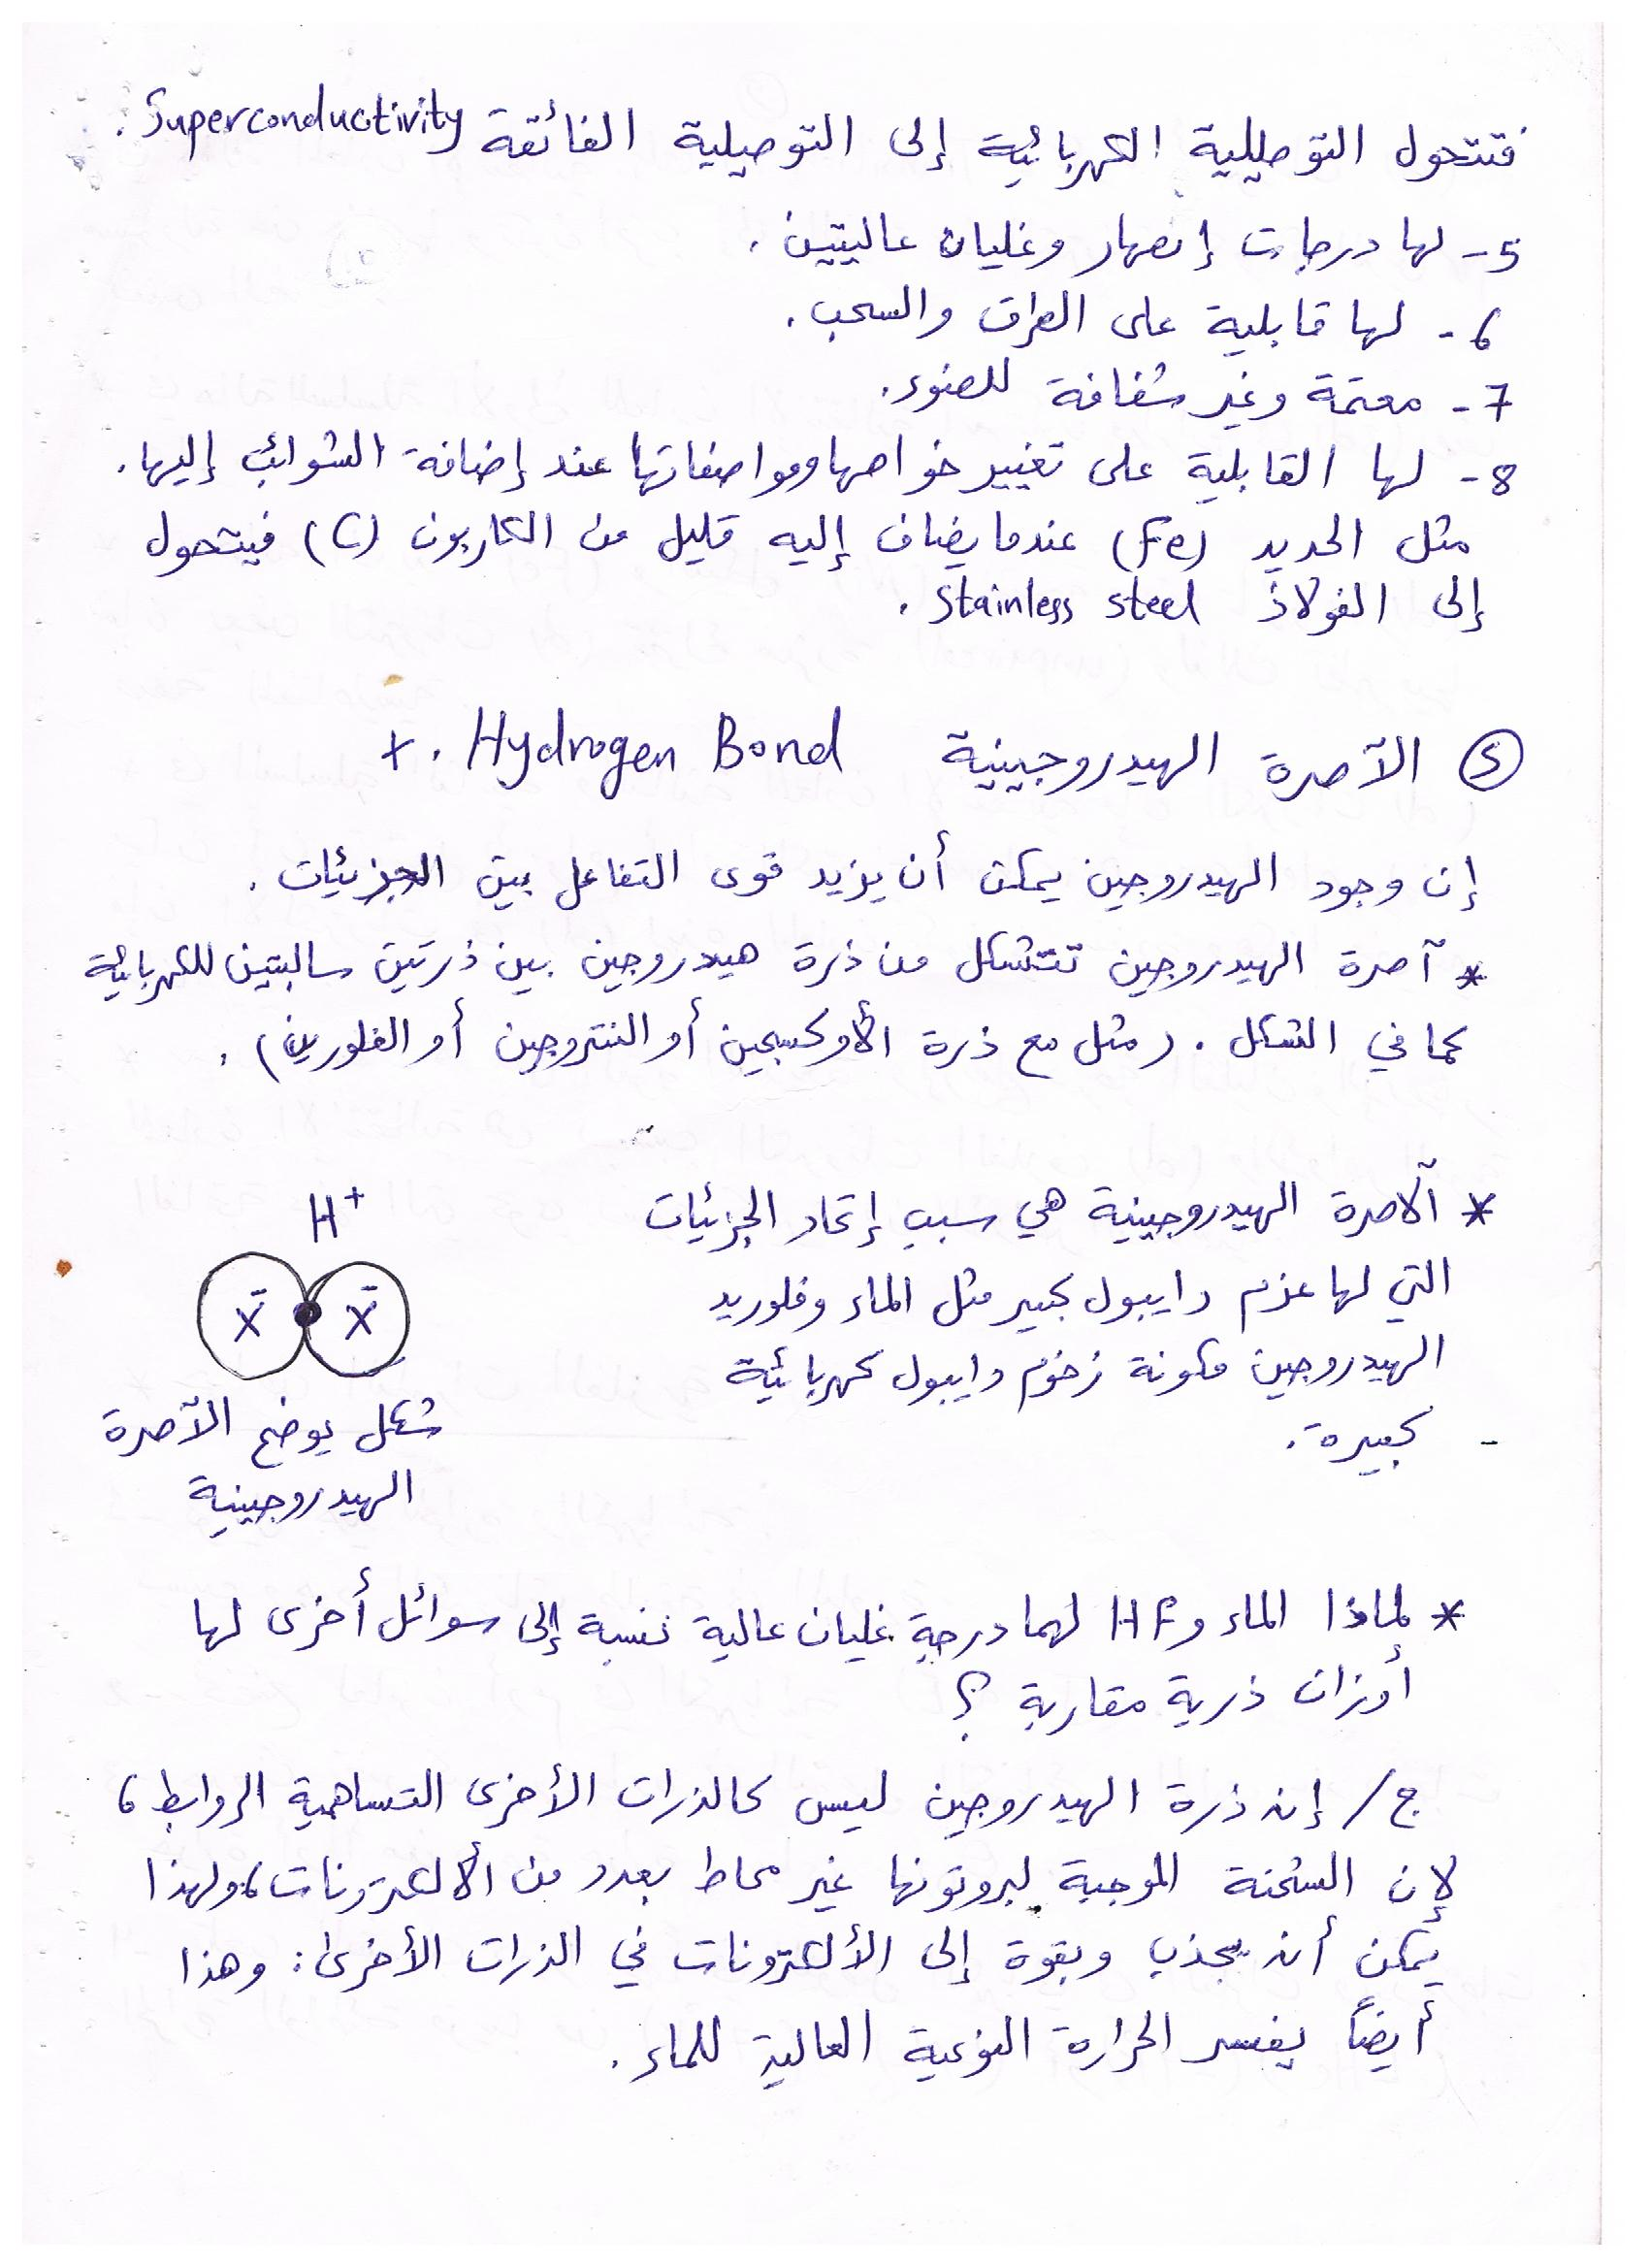 فتتحول التوصيلية الكهربائية إلى التوصيلية الفائقة Superconductivity .
5- لها درجات إنصهار وغليان عاليتين .
6- لها قابلية على الطرق والسحب .
7- معتمة وغير شفافة للضوء .
8- لها القابلية على تغيير خواصها ومواصفاتها عند إضافة الشوائب إليها .
مثل الحديد (Fe) عندما يضاف إليه قليل من الكاربون (C) فيتحول
إلى الفولاذ Stainless steel .
⑤ الآصرة الهيدروجينية Hydrogen Bond . +
إن وجود الهيدروجين يمكن أن يزيد قوى التفاعل بين الجزيئات .
* آصرة الهيدروجين تتشكل من ذرة هيدروجين بين ذرتين سالبتين للكهربائية
كما في الشكل . (مثل مع ذرة الأوكسجين أو النتروجين أو الفلورين) .
* الآصرة الهيدروجينية هي سبب إتحاد الجزيئات
التي لها عزم دايبول كبير مثل الماء وفلوريد
الهيدروجين مكونة زخوم دايبول كهربائية
- كبيرة .
H+
X- X-
شكل يوضح الآصرة
الهيدروجينية
* لماذا الماء و HF لهما درجة غليان عالية نسبة إلى سوائل أخرى لها
أوزان ذرية مقاربة ؟
ج / إن ذرة الهيدروجين ليس كالذرات الأخرى التساهمية الروابط ،
لإن الشحنة الموجبة لبروتونها غير محاط بعدد من الألكترونات ، ولهذا
يمكن أن يجذب وبقوة إلى الألكترونات في الذرات الأخرى : وهذا
أيضاً يفسر الحرارة النوعية العالية للماء .